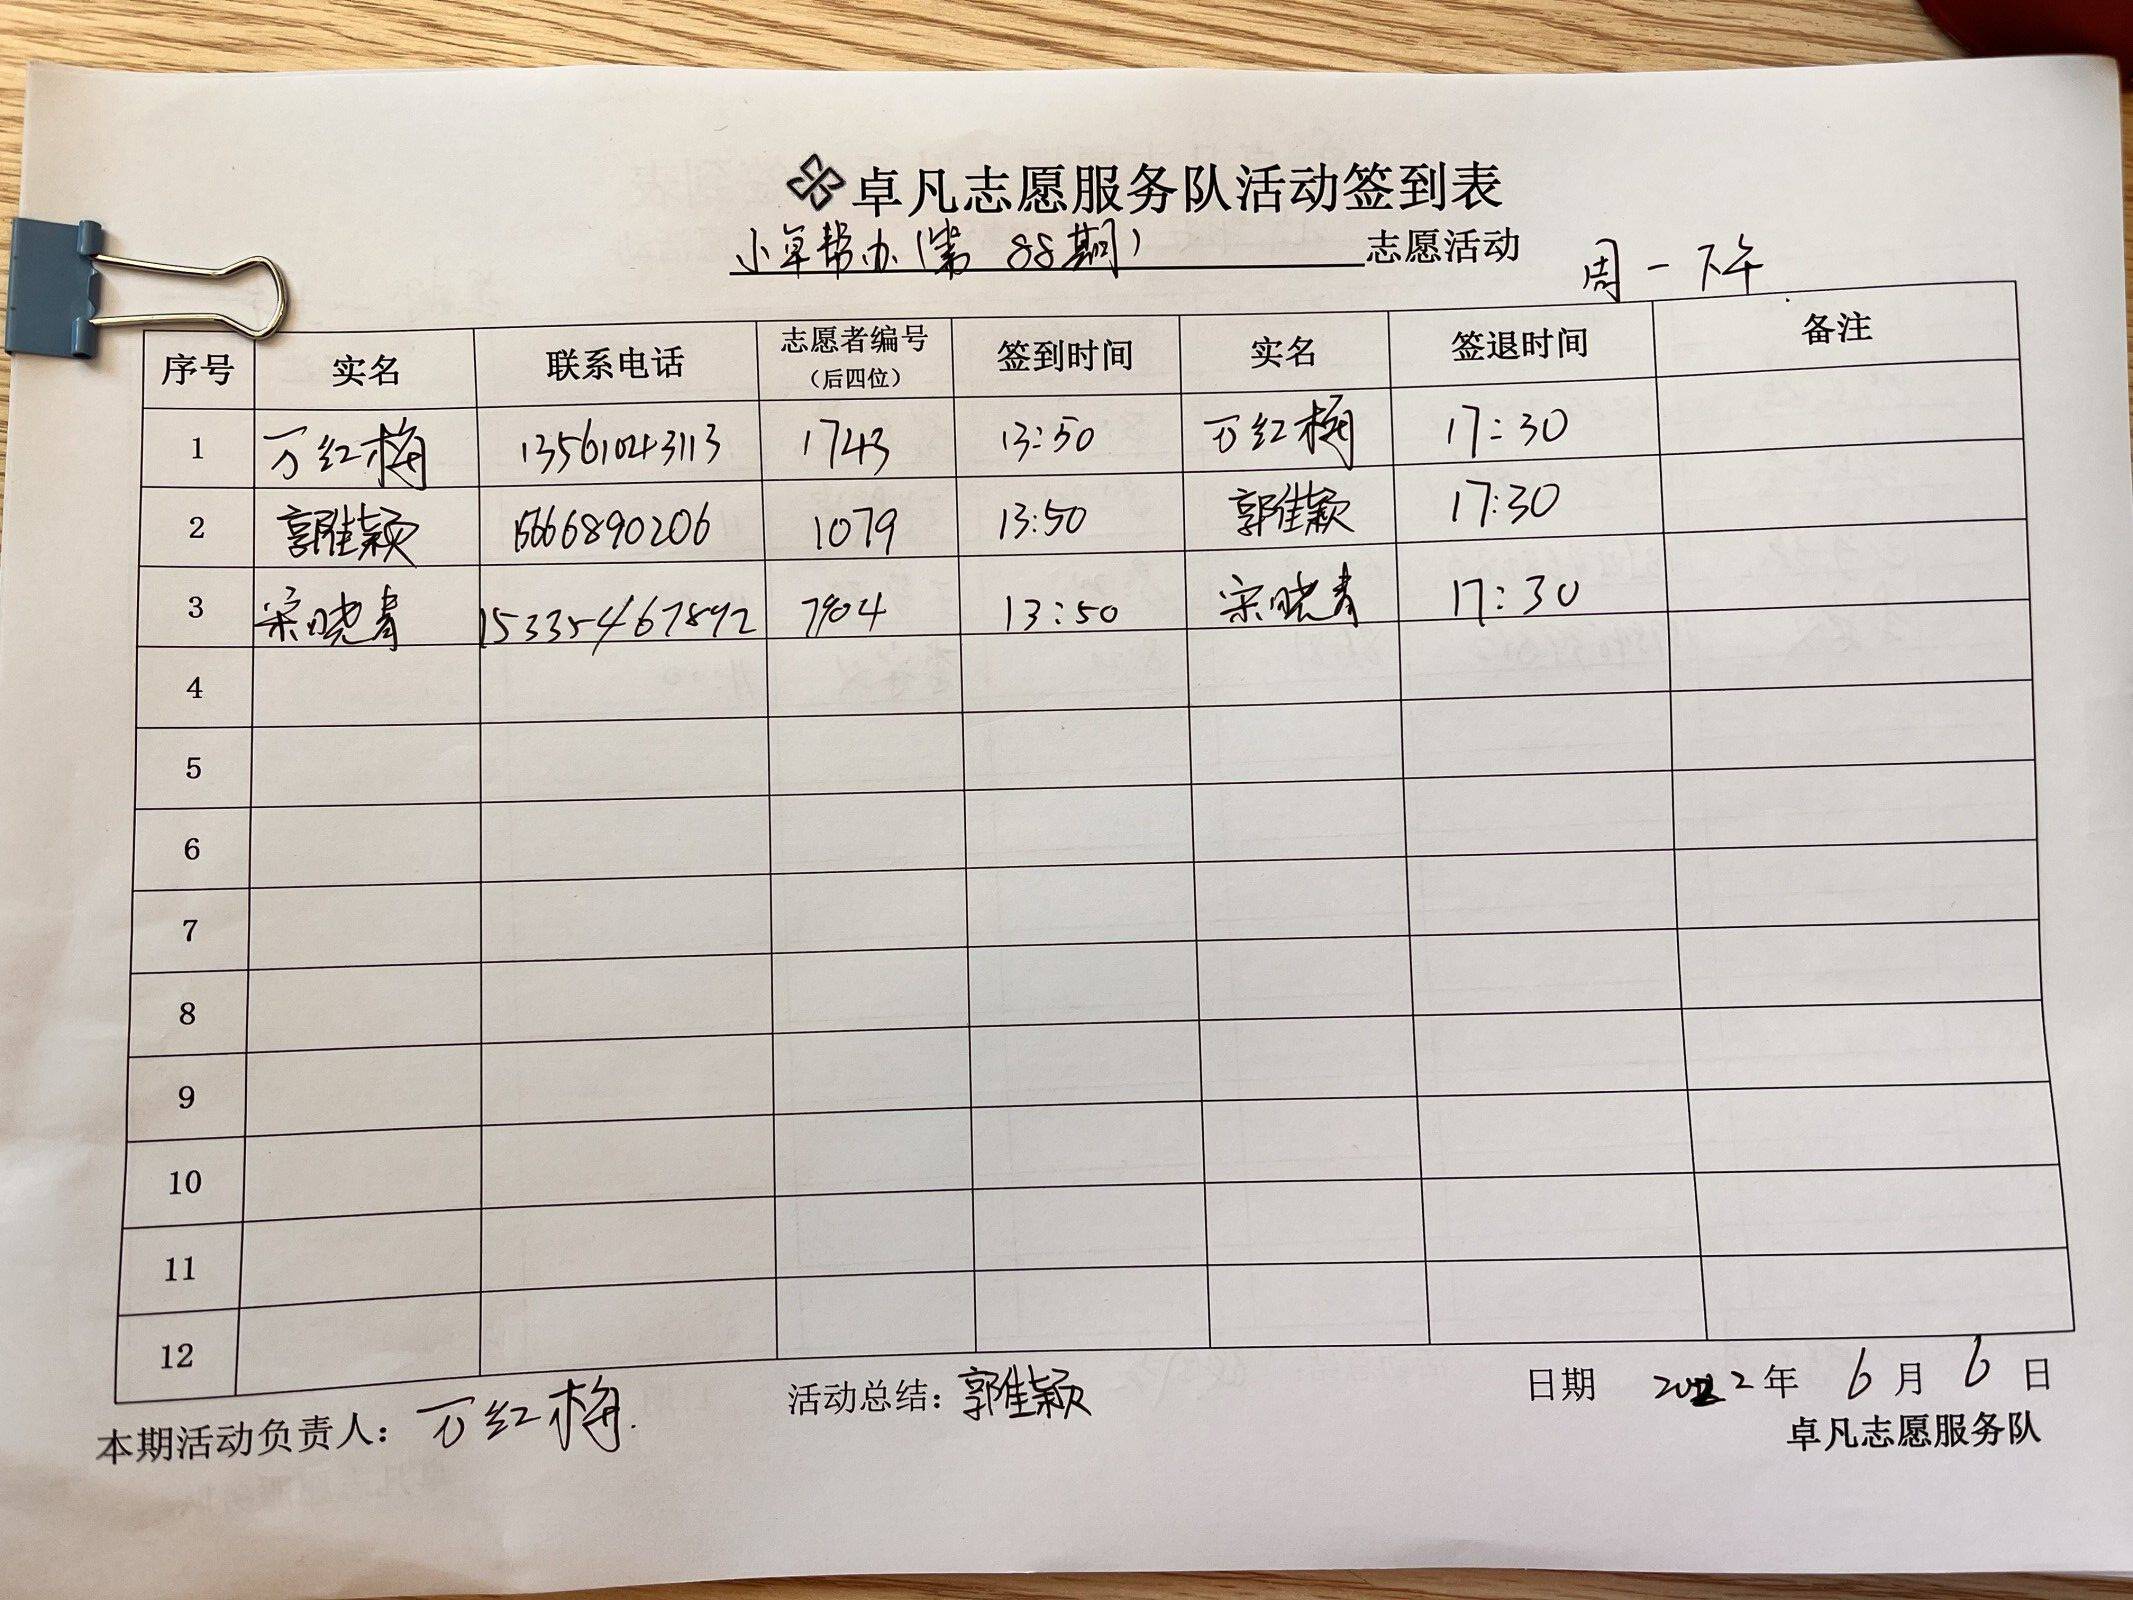 卓凡志愿服务队活动签到表
小卓帮办(第 88期) 志愿活动 周一下午
序号 实名 联系电话 志愿者编号(后四位) 签到时间 实名 签退时间 备注
1 万红梅 13561043113 1743 13:50 万红梅 17:30
2 郭佳颖 15666890206 1079 13:50 郭佳颖 17:30
3 宋晓青 15335467892 7904 13:50 宋晓青 17:30
4
5
6
7
8
9
10
11
12
本期活动负责人: 万红梅. 活动总结: 郭佳颖 日期 2022年 6月 6日
卓凡志愿服务队